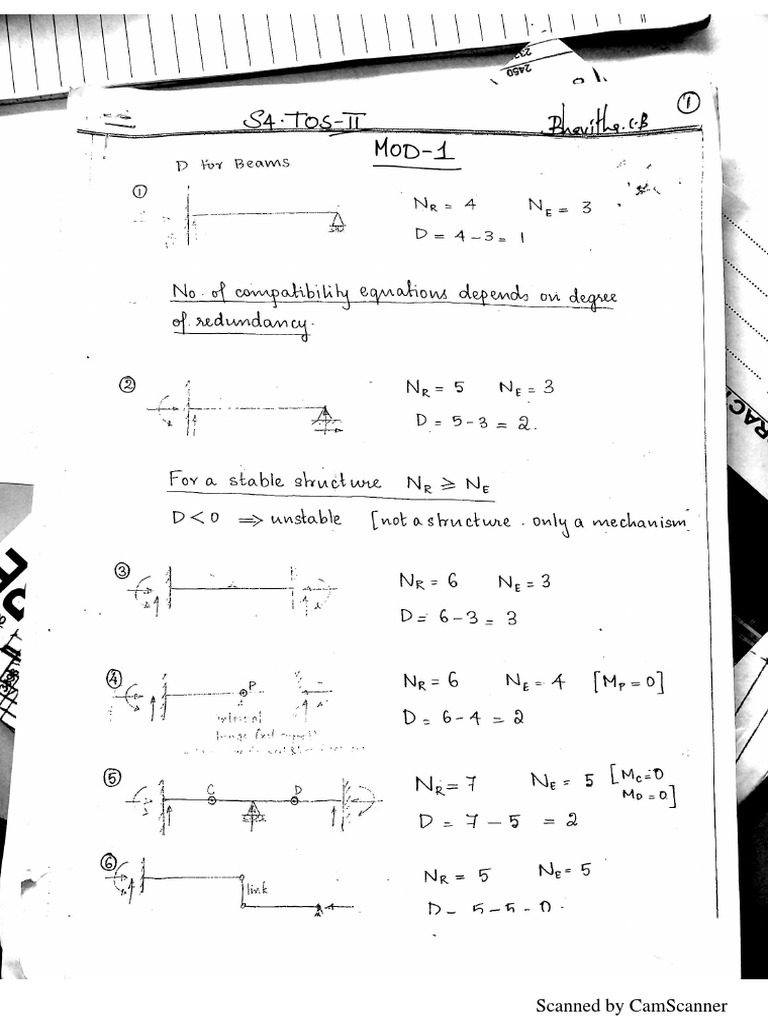 2450
1
S4. TOS-II
Bhavitha.C.B
MOD-1
D for Beams
① N_R = 4 N_E = 3
D = 4-3 = 1
No. of compatibility equations depends on degree
of redundancy.
② N_R = 5 N_E = 3
D = 5-3 = 2.
For a stable structure N_R ⩾ N_E
D<0 ⟹ unstable [not a structure. only a mechanism
③ N_R = 6 N_E = 3
D = 6-3 = 3
④ P N_R = 6 N_E = 4 [M_P=0]
D = 6-4 = 2
internal
⑤ C D N_R = 7 N_E = 5 [M_C=0
M_D=0]
D = 7-5 = 2
⑥ link N_R = 5 N_E = 5
D = 5-5=0.
Scanned by CamScanner